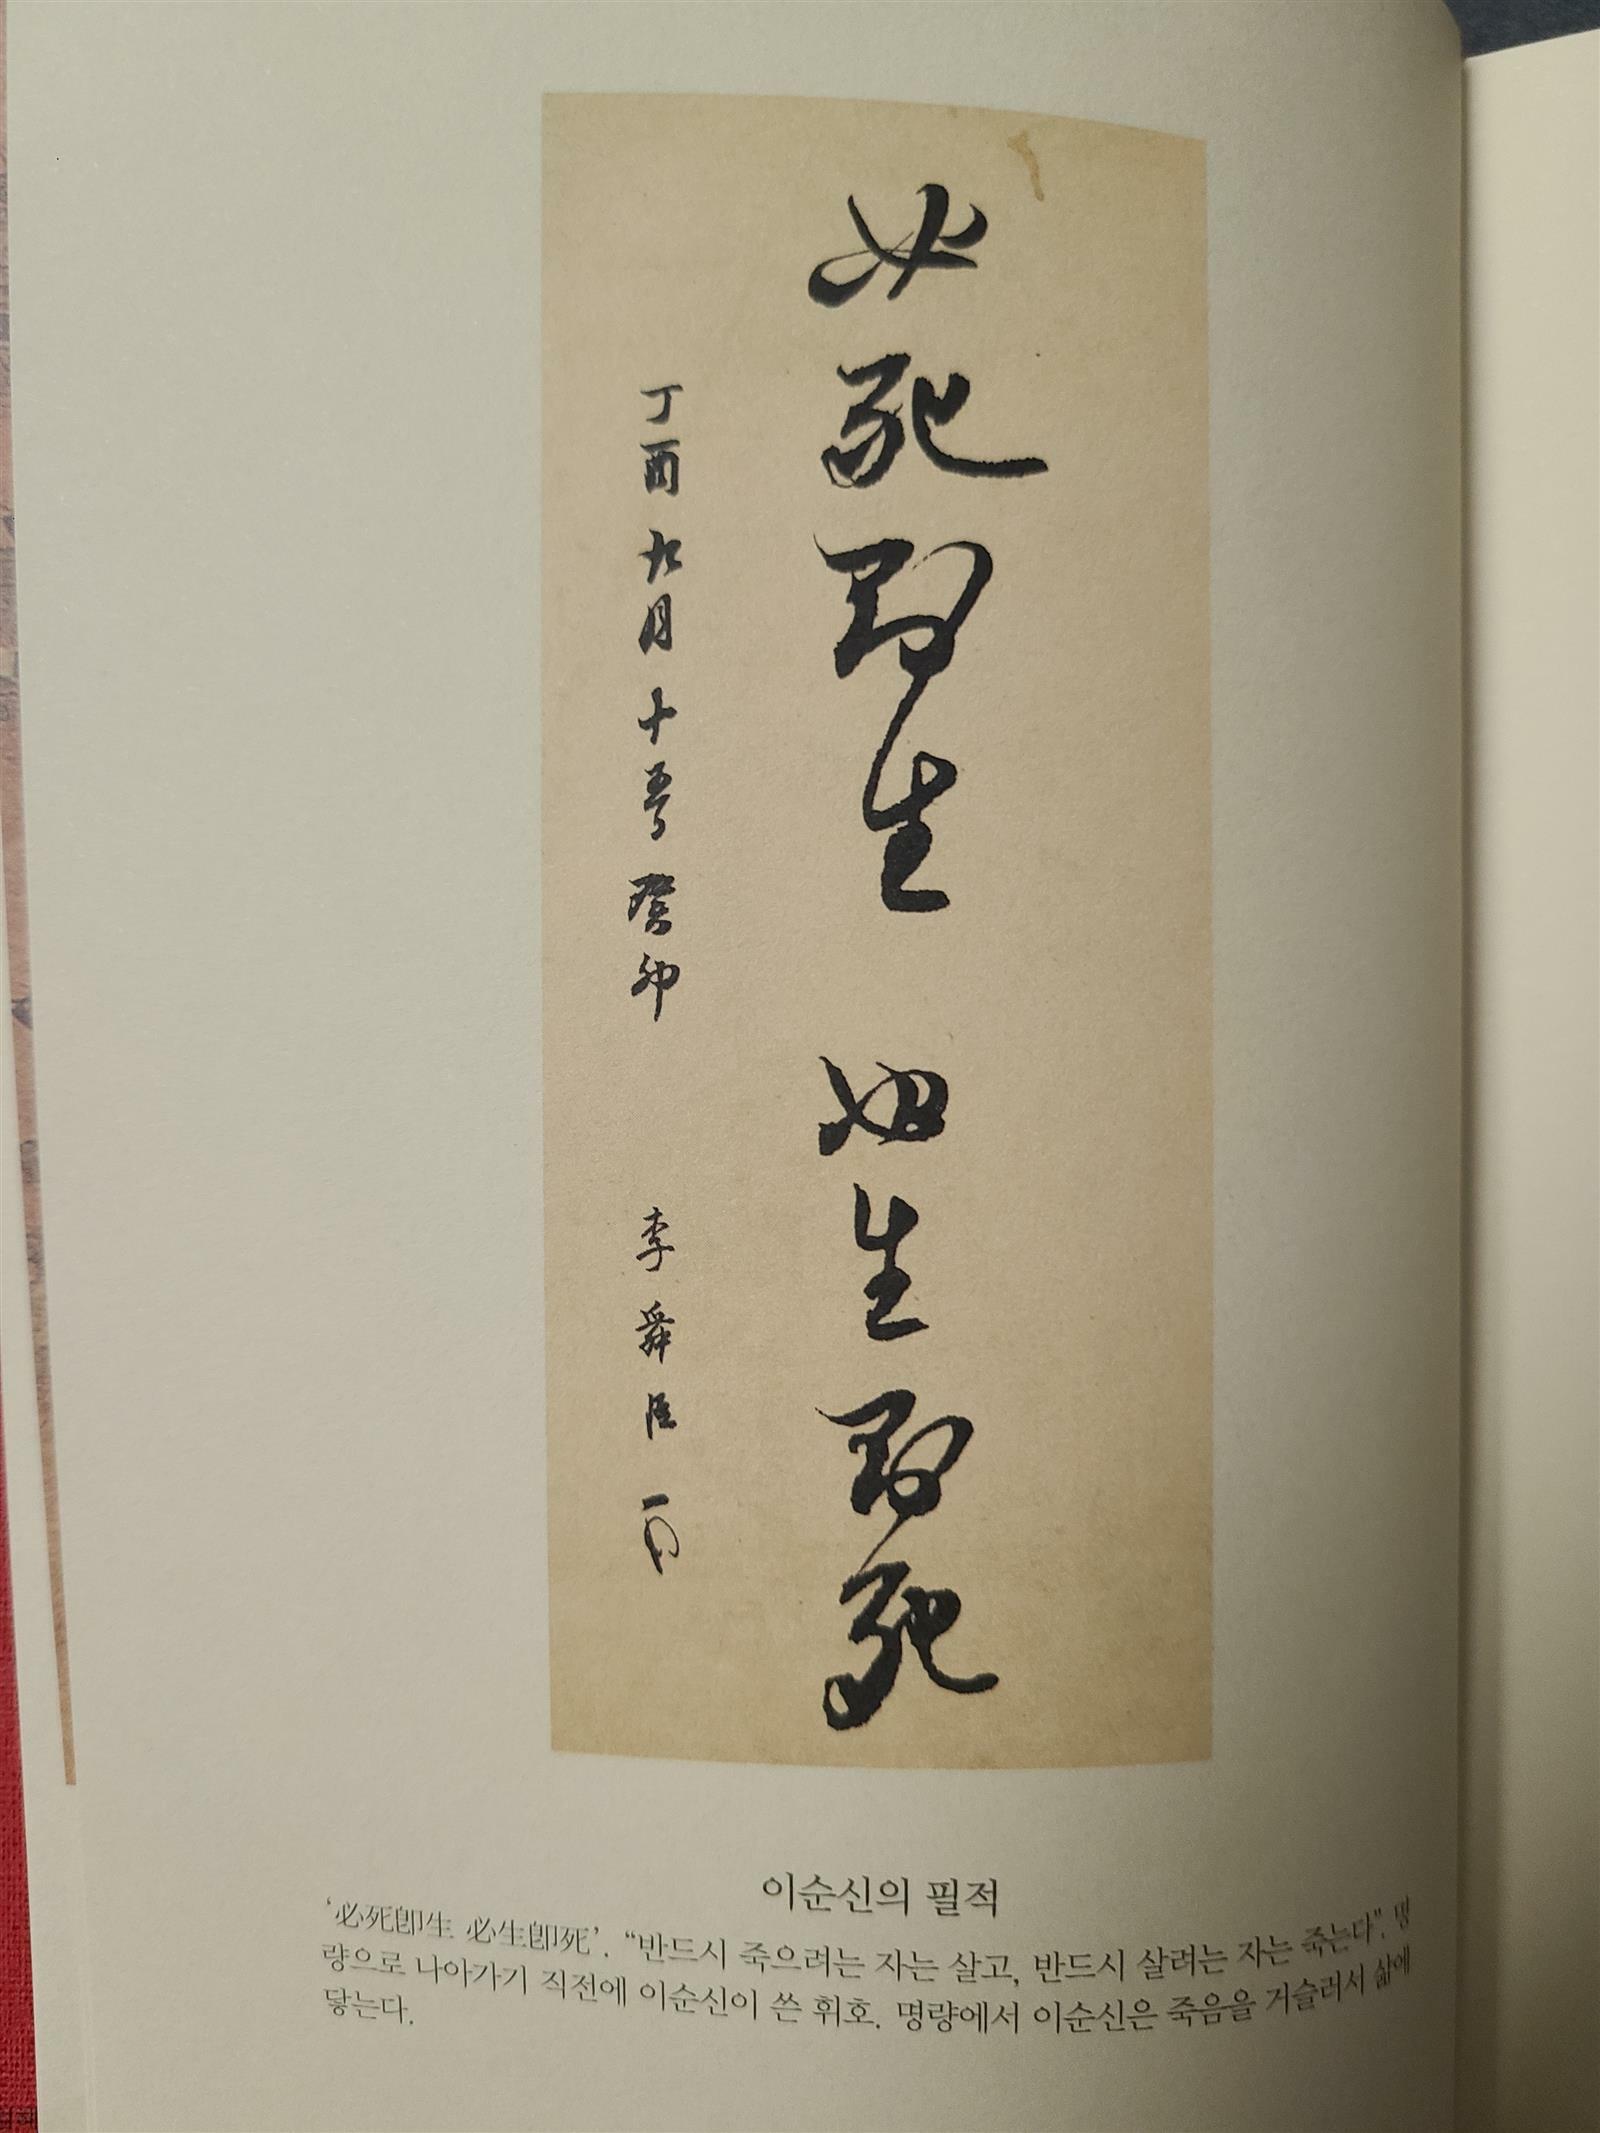 必死即生 必生即死
丁酉九月十五日癸卯 李舜臣
이순신의 필적
‘必死卽生 必生卽死’. “반드시 죽으려는 자는 살고, 반드시 살려는 자는 죽는다”. 명
량으로 나아가기 직전에 이순신이 쓴 휘호. 명량에서 이순신은 죽음을 거슬러서 삶에
닿는다.